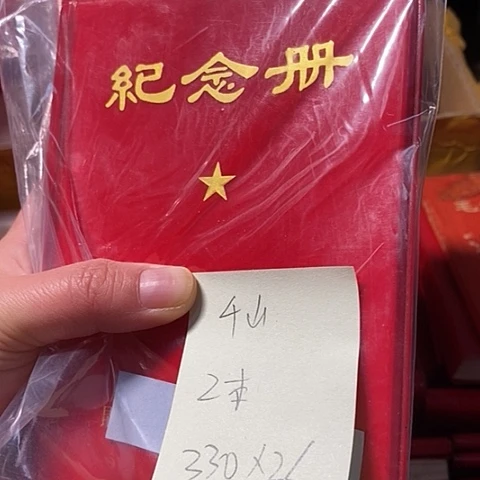 紀念册
千山
2本
330×2